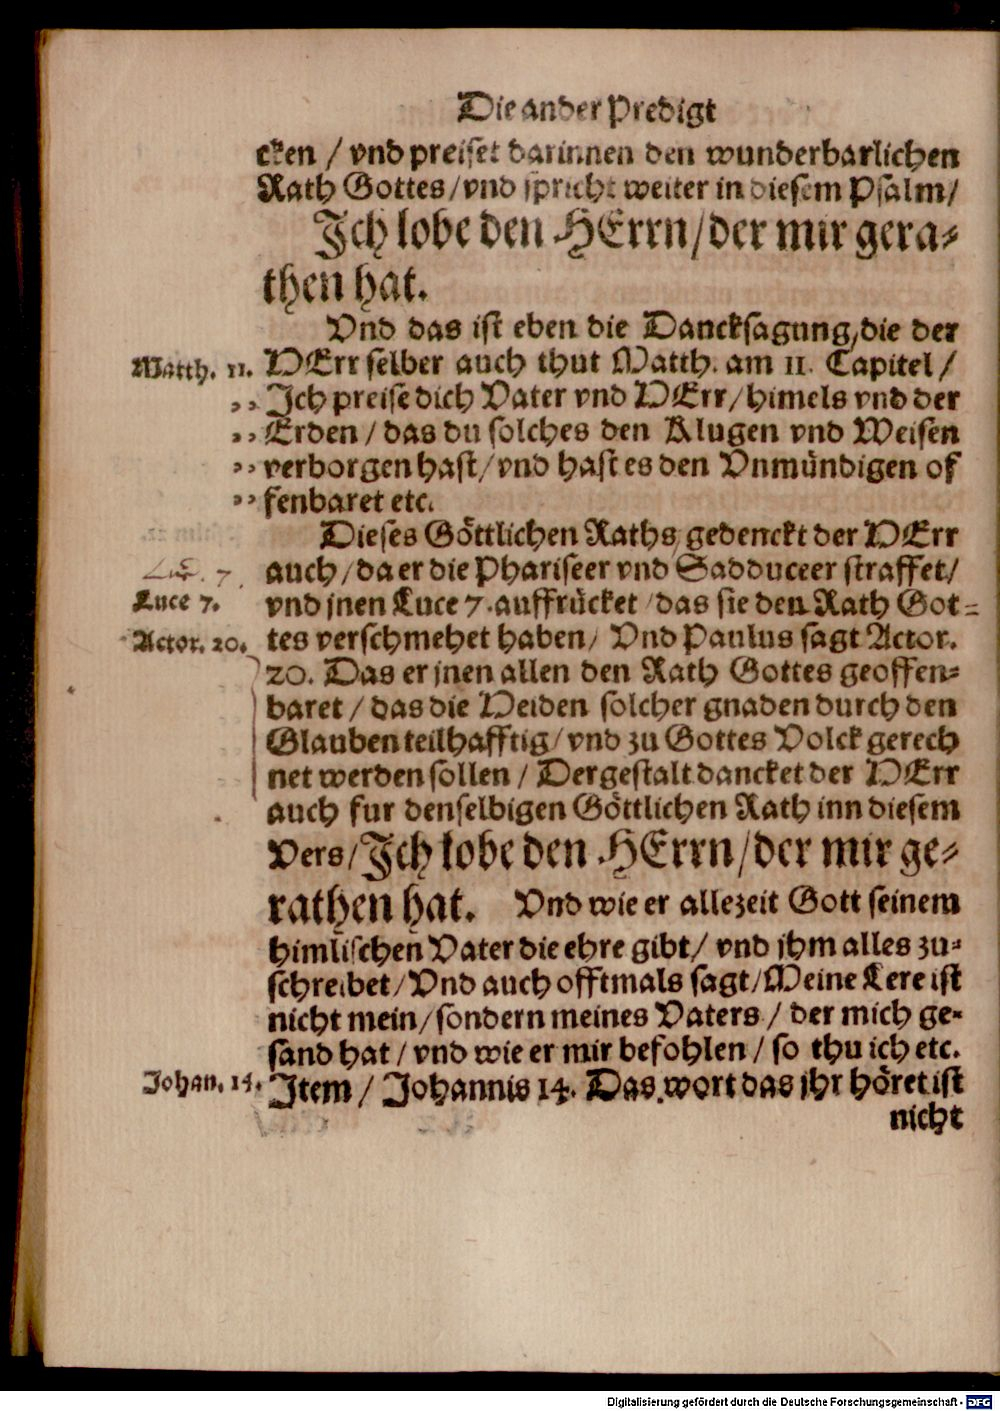 Die ander Predigt
cken / vnd preiset darinnen den wunderbarlichen
Rath Gottes / vnd spricht weiter in diesem Psalm /
Jch lobe den HErrn / der mir gera-
then hat.
Vnd das ist eben die Dancksagung, die der
Matth. 11. HErr selber auch thut Matth. am 11. Capitel /
,, Jch preise dich Vater vnd HErr / himels vnd der
,, Erden / das du solches den Klugen vnd Weisen
,, verborgen hast / vnd hast es den Vnmündigen of
,, fenbaret etc.
Dieses Göttlichen Raths / gedenckt der HErr
auch / da er die Phariseer vnd Sadduceer straffet /
Luce 7. vnd jnen Luce 7. auffrücket / das sie den Rath Got-
Actor. 20. tes verschmehet haben / Vnd Paulus sagt Actor.
20. Das er jnen allen den Rath Gottes geoffen-
baret / das die Heiden solcher gnaden durch den
Glauben teilhafftig / vnd zu Gottes Volck gerech
net werden sollen / Dergestalt dancket der HErr
auch fur denselbigen Göttlichen Rath inn diesem
Vers / Jch lobe den HErrn / der mir ge-
rathen hat. Vnd wie er allezeit Gott seinem
himlischen Vater die ehre gibt / vnd jhm alles zu-
schreibet / Vnd auch offtmals sagt / Meine Lere ist
nicht mein / sondern meines Vaters / der mich ge-
sand hat / vnd wie er mir befohlen / so thu ich etc.
Johan. 14. Jtem / Johannis 14. Das wort das jhr höret ist
nicht
Digitalisierung gefördert durch die Deutsche Forschungsgemeinschaft - DFG